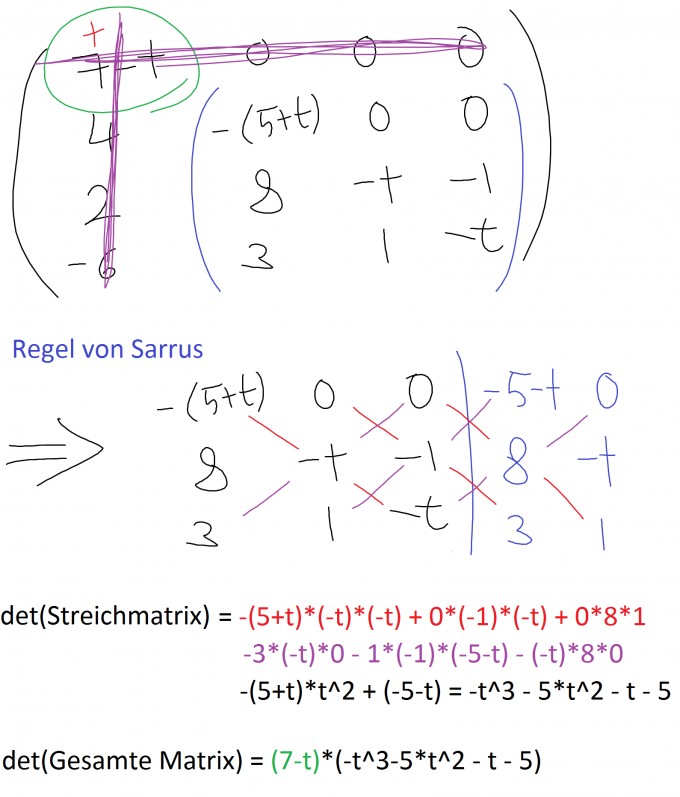 +
7-t 0 0 0
4 -(5+t) 0 0
2 8 -t -1
-6 3 1 -t
Regel von Sarrus
-(5+t) 0 0 -5-t 0
⇒ 8 -t -1 8 -t
3 1 -t 3 1
det(Streichmatrix) = -(5+t)*(-t)*(-t) + 0*(-1)*(-t) + 0*8*1
-3*(-t)*0 - 1*(-1)*(-5-t) - (-t)*8*0
-(5+t)*t^2 + (-5-t) = -t^3 - 5*t^2 - t - 5
det(Gesamte Matrix) = (7-t)*(-t^3-5*t^2 - t - 5)